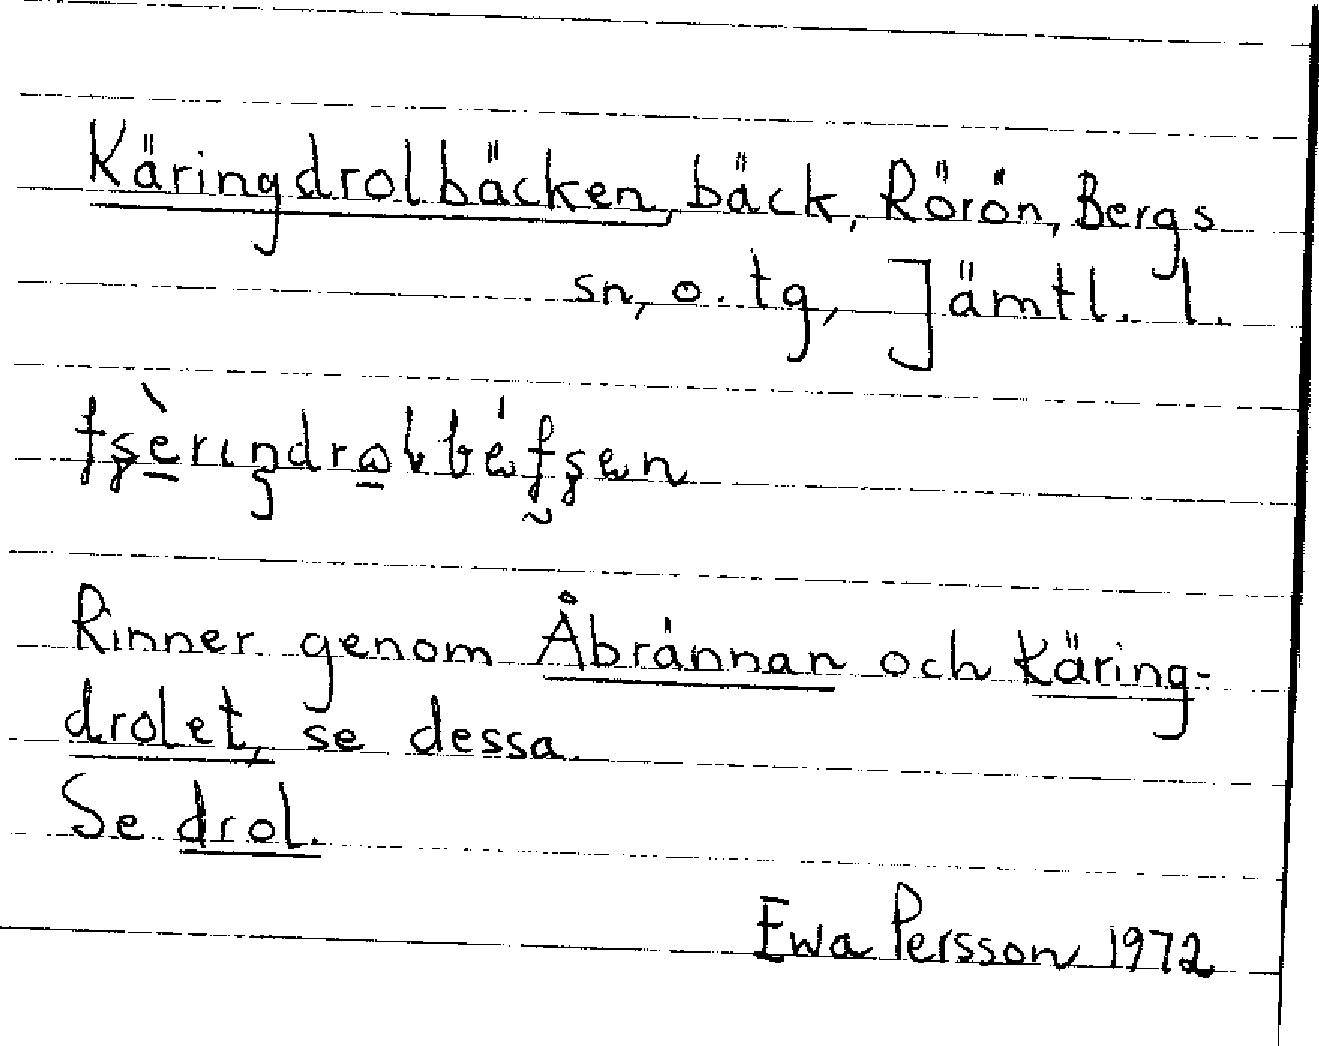 Käringdrolbäcken, bäck, Rörön, Bergs
sn, o. tg, Jämtl. l.
Rinner genom Åbrännan och Käring-
drolet, se dessa.
Se drol.
Ewa Persson 1972